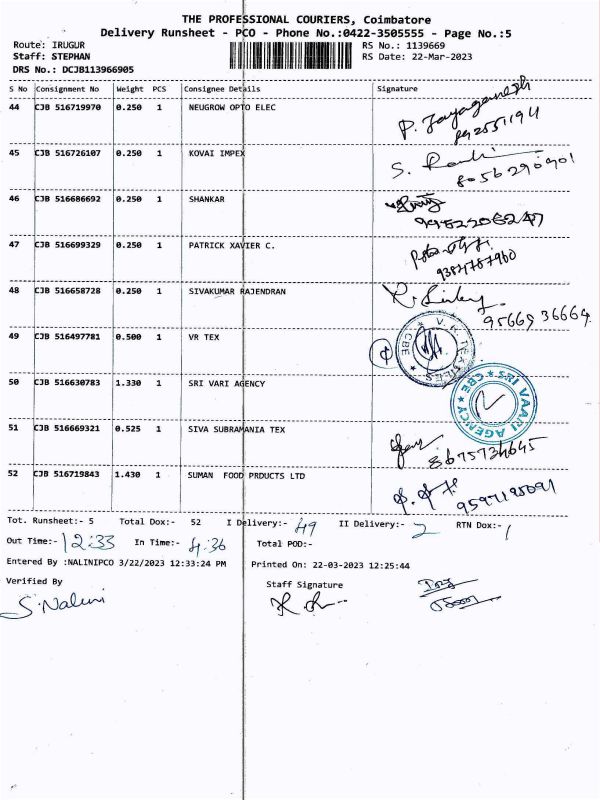 THE PROFESSIONAL COURIERS, Coimbatore
Delivery Runsheet - PCO - Phone No.:0422-3505555 - Page No.:5
Route: IRUGUR
RS No.: 1139669
Staff: STEPHAN
RS Date: 22-Mar-2023
DRS No.: DCJB113966905
S No Consignment No Weight PCS Consignee Details Signature
44 CJB 516719970 0.250 1 NEUGROW OPTO ELEC
45 CJB 516726107 0.250 1 KOVAI IMPEX
8056290901
46 CJB 516686692 0.250 1 SHANKAR
47 CJB 516699329 0.250 1 PATRICK XAVIER C.
48 CJB 516658728 0.250 1 SIVAKUMAR RAJENDRAN
95669 36664
49 CJB 516497781 0.500 1 VR TEX
50 CJB 516630783 1.330 1 SRI VARI AGENCY
SRI VAARI AGENCY ★ CBE ★
51 CJB 516669321 0.525 1 SIVA SUBRAMANIA TEX
52 CJB 516719843 1.430 1 SUMAN FOOD PRDUCTS LTD
Tot. Runsheet:- 5 Total Dox:- 52 I Delivery:- 49 II Delivery:- 2 RTN Dox:- 1
Out Time:- 12:33 In Time:- 4:36 Total POD:-
Entered By :NALINIPCO 3/22/2023 12:33:24 PM Printed On: 22-03-2023 12:25:44
Verified By Staff Signature
S. Nalini